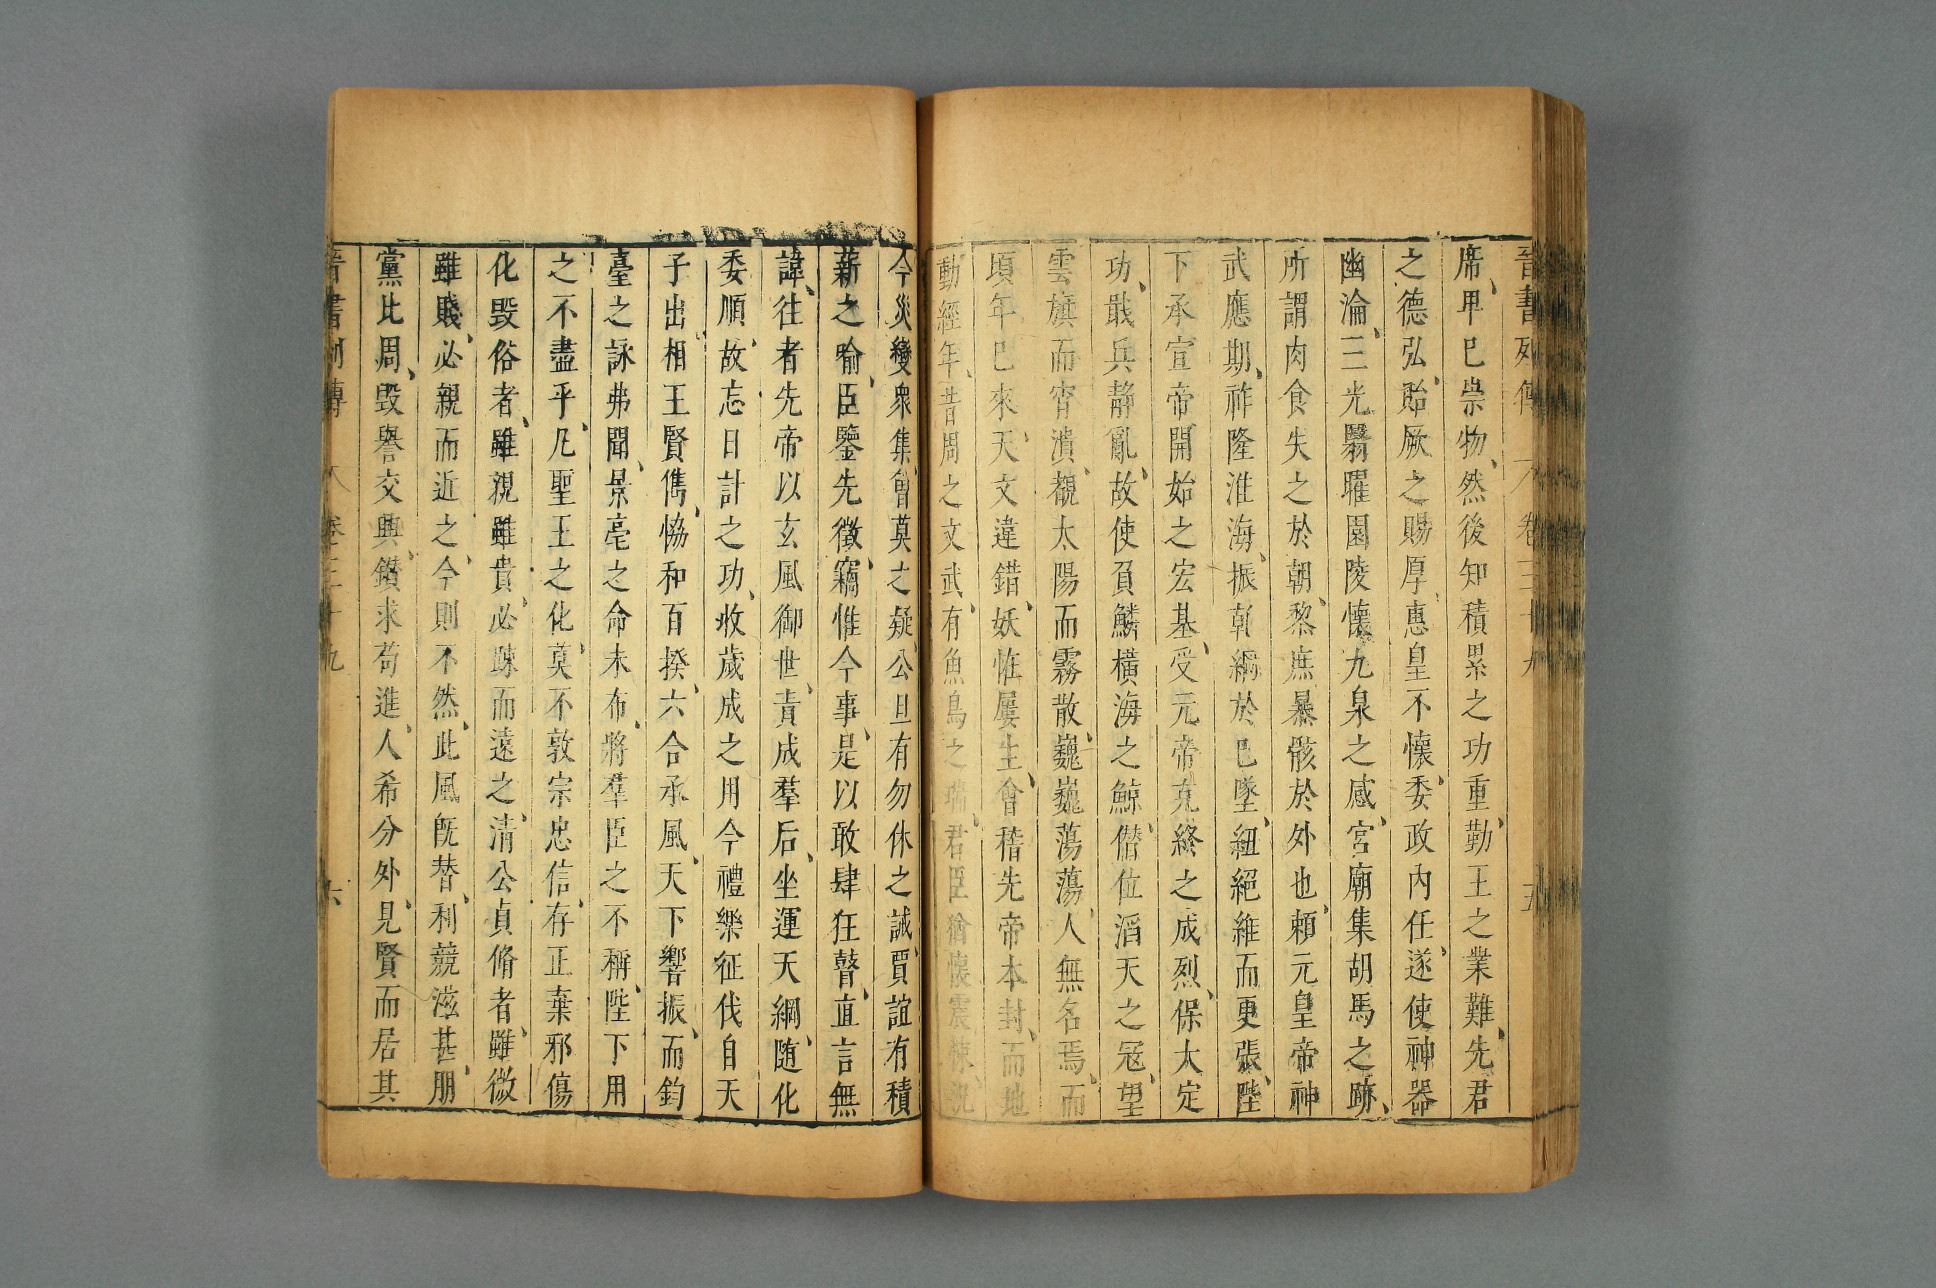 晉書列傳 卷三十九 五
席卑巳崇物然後知積累之功重勤王之業難先君
之德弘貽厥之賜厚惠皇不懷委政內任遂使神器
幽淪三光翳曜園陵懷九泉之感宮廟集胡馬之跡
所謂肉食失之於朝黎庶暴骸於外也賴元皇帝神
武應期祚隆淮海振乾綱於巳墜紐絕維而更張陛
下承宣帝開始之宏基受元帝克終之成烈保大定
功戢兵靜亂故使負鱗橫海之鯨僭位滔天之寇望
雲旗而宵潰覩太陽而霧散巍巍蕩蕩人無名焉而
頃年巳來天文違錯妖恠屢生會稽先帝本封而地
動經年昔周之文武有魚鳥之瑞君臣猶懷震悚況
今災變衆集曾莫之疑公旦有勿休之誡賈誼有積
薪之喻臣鑒先徵竊惟今事是以敢肆狂瞽直言無
諱往者先帝以玄風御世責成羣后坐運天綱随化
委順故忘日計之功收歲成之用今禮樂征伐自天
子出相王賢儁恊和百揆六合承風天下響振而鈞
臺之詠弗聞景亳之命未布將羣臣之不稱陛下用
之不盡乎凡聖王之化莫不敦宗忠信存正棄邪傷
化毀俗者雖親雖貴必踈而遠之清公貞脩者雖微
雖賤必親而近之今則不然此風旣替利競滋甚朋
黨比周毀譽交興鑽求苟進人希分外見賢而居其
晉書列傳 卷三十九 六